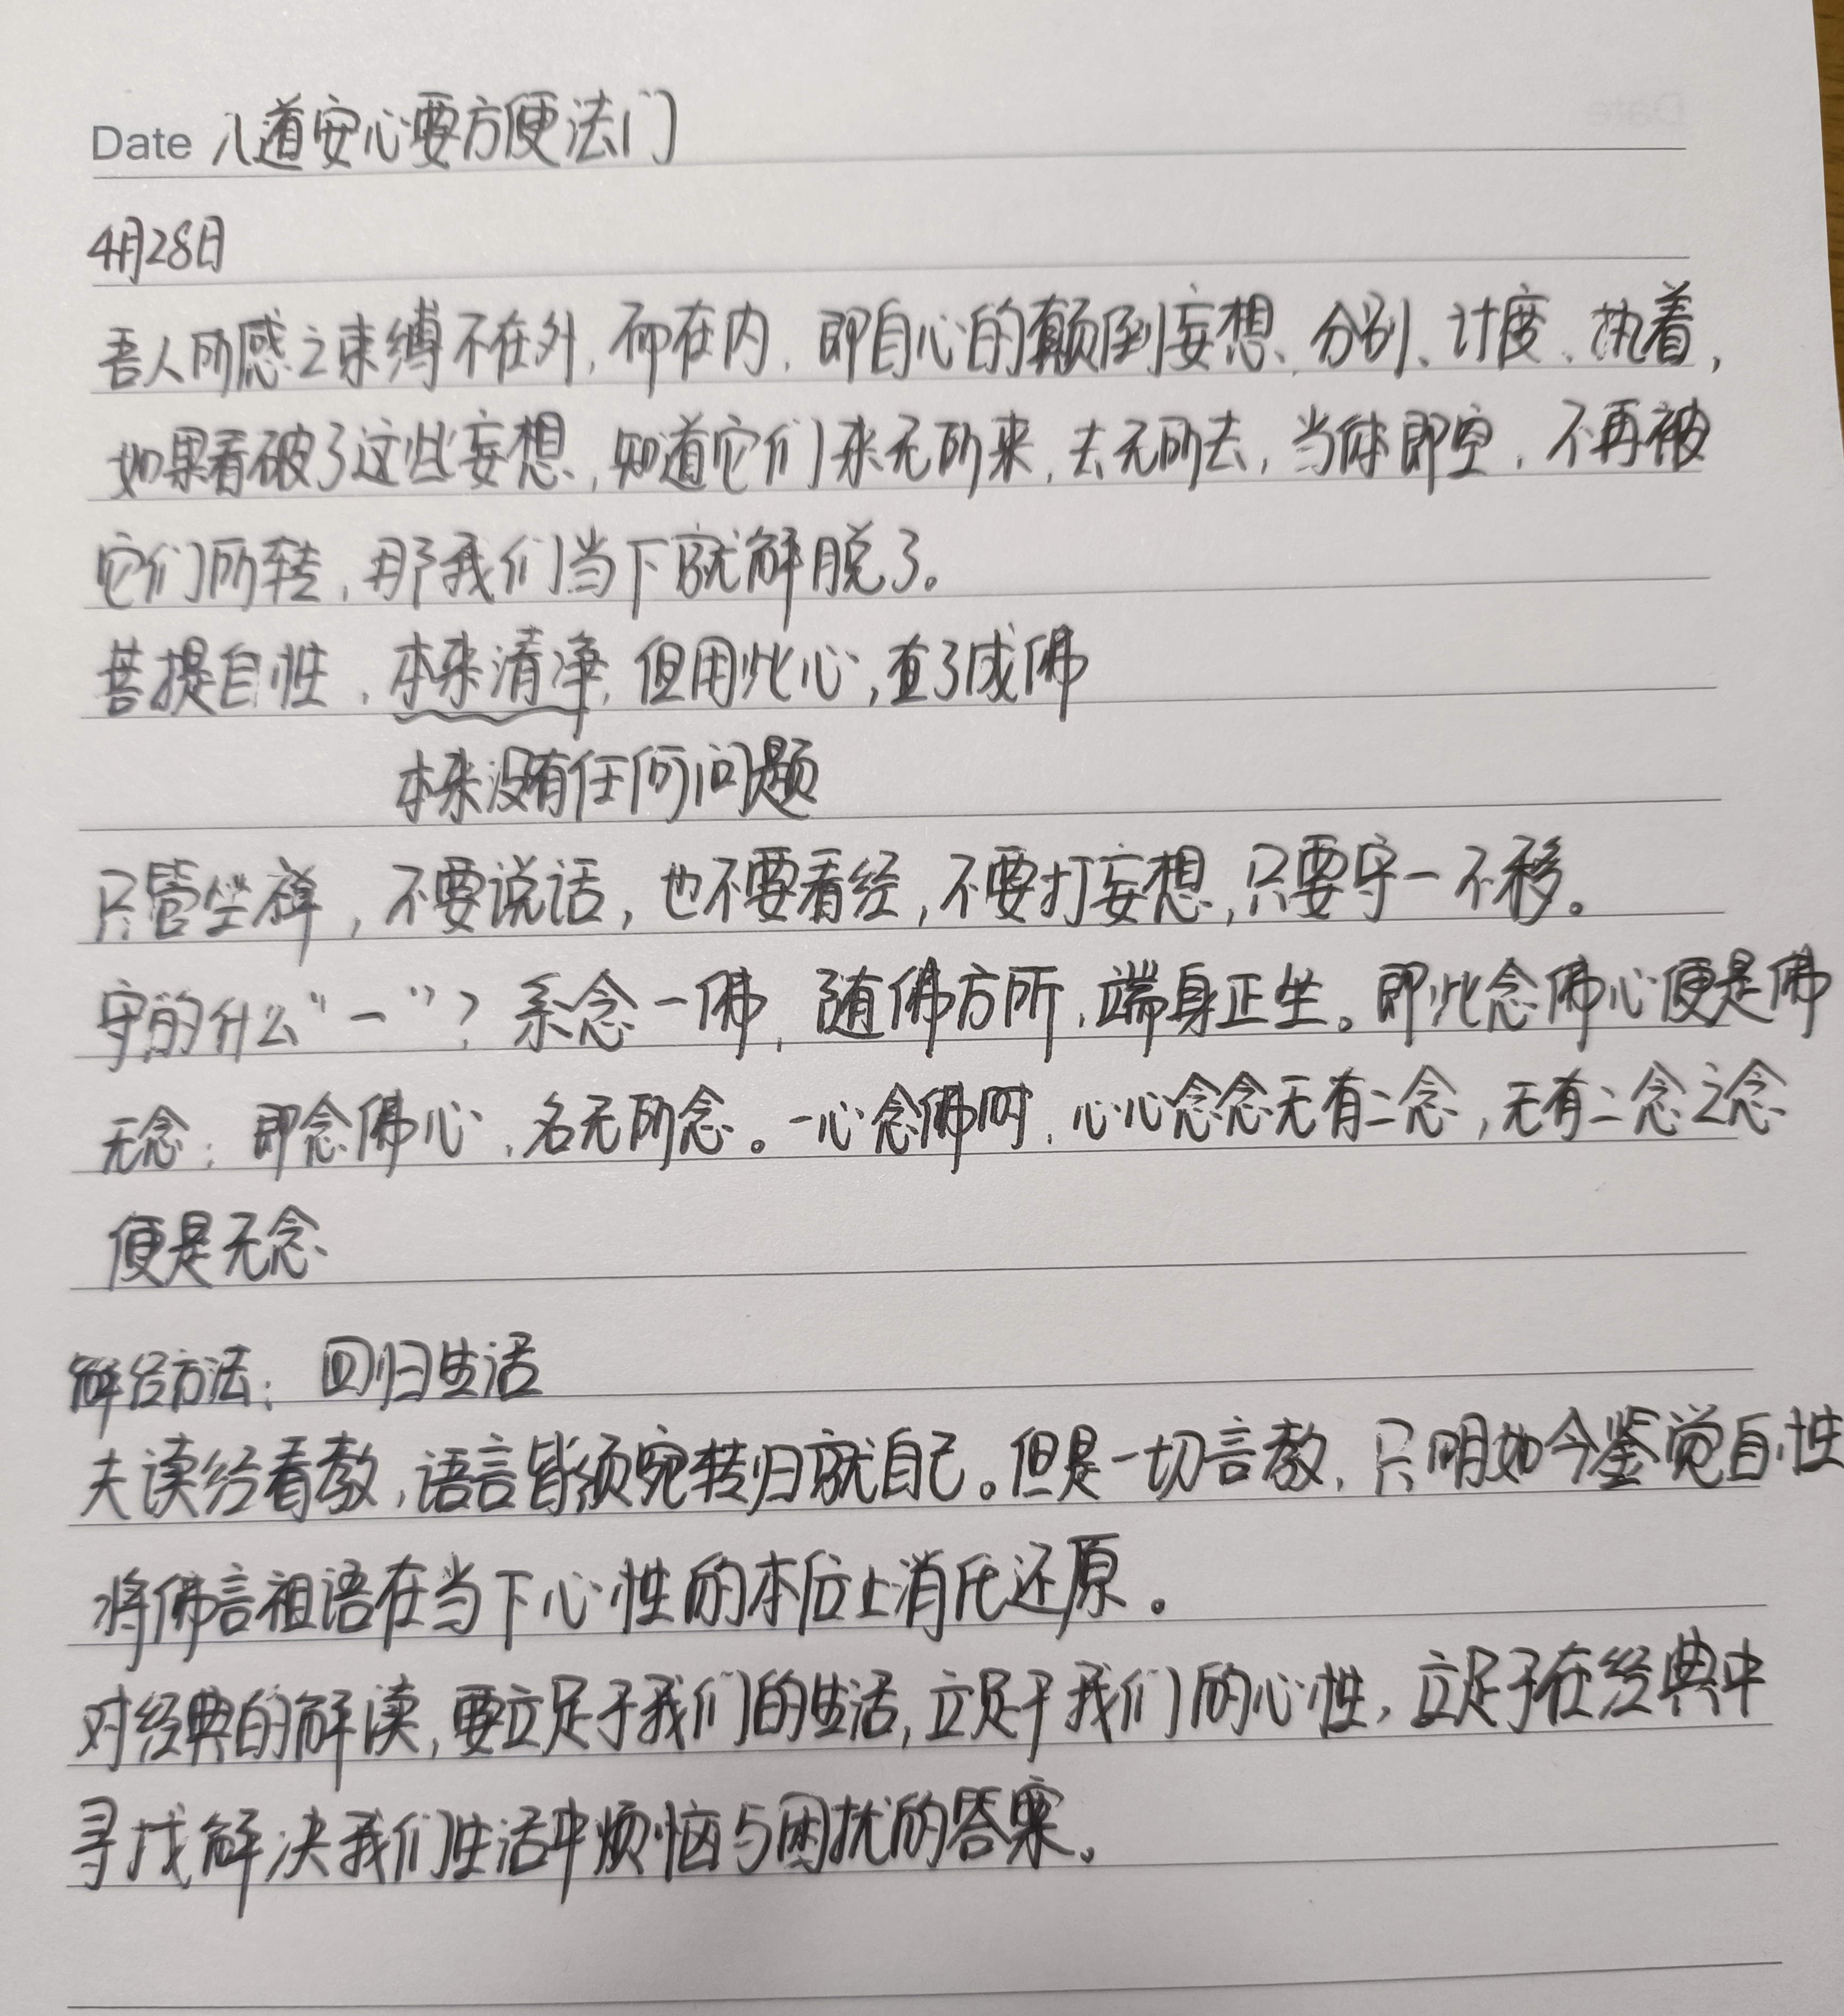 Date 入道安心要方便法门
4月28日
吾人所感之束缚不在外,而在内,即自心的颠倒妄想、分别、计度、执着,
如果看破了这些妄想,知道它们来无所来,去无所去,当体即空,不再被
它们所转,那我们当下就解脱了。
菩提自性,本来清净,但用此心,直了成佛
本来没有任何问题
只管坐禅,不要说话,也不要看经,不要打妄想,只要守一不移。
守的什么“一”?系念一佛,随佛方所,端身正坐。即此念佛心便是佛
无念:即念佛心,名无所念。一心念佛时,心心念念无有二念,无有二念之念
便是无念
解经方法:回归生活
夫读经看教,语言皆须宛转归就自己。但是一切言教,只明如今鉴觉自性
将佛言祖语在当下心性的本位上消化还原。
对经典的解读,要立足于我们的生活,立足于我们的心性,立足于在经典中
寻找解决我们生活中烦恼与困扰的答案。